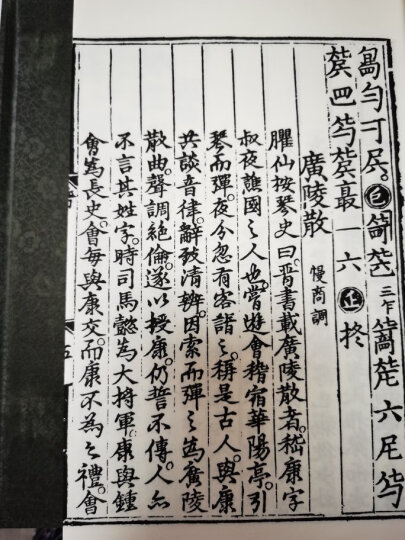 廣陵散 慢商調
臞仙按琴史曰。晉書載廣陵散者。嵇康字
叔夜譙國之人也。嘗遊會稽宿華陽亭。引
琴而彈。夜分忽有客詣之。稱是古人。與康
共談音律。辭致清辨。因索而彈之。為廣陵
散曲。聲調絕倫。遂以授康。仍誓不傳人。亦
不言其姓字。時司馬懿為大將軍。康與鍾
會為長史。會每與康交。而康不為之禮。會